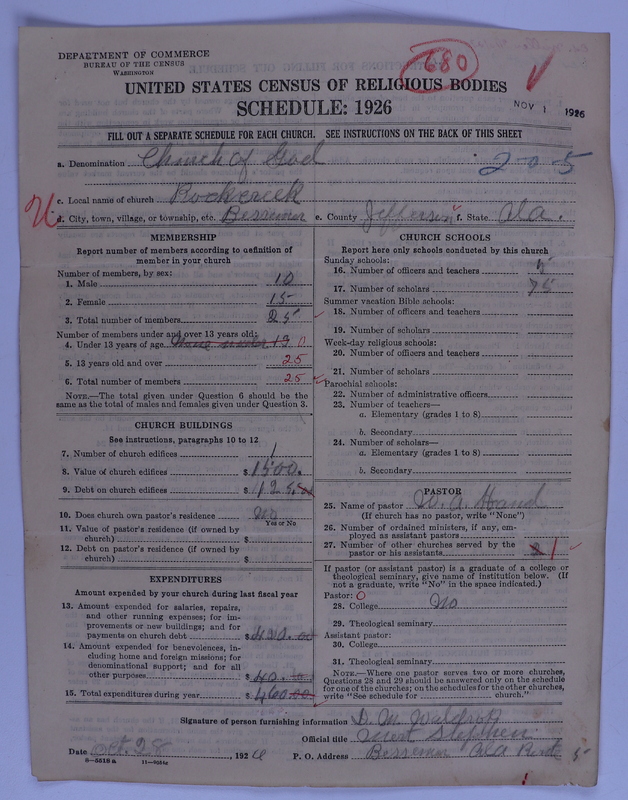 DEPARTMENT OF COMMERCE
BUREAU OF THE CENSUS
WASHINGTON
680
UNITED STATES CENSUS OF RELIGIOUS BODIES
SCHEDULE: 1926
NOV 1 1926
FILL OUT A SEPARATE SCHEDULE FOR EACH CHURCH. SEE INSTRUCTIONS ON THE BACK OF THIS SHEET
a. Denomination Church of God
2-0-5
c. Local name of church Rockcreek
d. City, town, village, or township, etc. Bessemer e. County Jefferson f. State Ala.
MEMBERSHIP
Report number of members according to definition of
member in your church
Number of members, by sex:
1. Male 10
2. Female 15
3. Total number of members 25
Number of members under and over 13 years old:
4. Under 13 years of age 0
5. 13 years old and over 25
6. Total number of members 25
NOTE.—The total given under Question 6 should be
same as the total of males and females given under Question 3.
CHURCH BUILDINGS
See instructions, paragraphs 10 to 12
7. Number of church edifices 1
8. Value of church edifices $ 1500.
9. Debt on church edifices $ 125.
10. Does church own pastor's residence no
Yes or No
11. Value of pastor's residence (if owned by
church) $
12. Debt on pastor's residence (if owned by
church) $
EXPENDITURES
Amount expended by your church during last fiscal year
13. Amount expended for salaries, repairs,
and other running expenses; for im-
provements or new buildings; and for
payments on church debt $
14. Amount expended for benevolences, in-
cluding home and foreign missions; for
denominational support; and for all
other purposes $ 40.
15. Total expenditures during year $ 460.00
CHURCH SCHOOLS
Report here only schools conducted by this church
Sunday schools:
16. Number of officers and teachers
17. Number of scholars 75
Summer vacation Bible schools:
18. Number of officers and teachers
19. Number of scholars
Week-day religious schools:
20. Number of officers and teachers
21. Number of scholars
Parochial schools:
22. Number of administrative officers
23. Number of teachers—
a. Elementary (grades 1 to 8)
b. Secondary
24. Number of scholars—
a. Elementary (grades 1 to 8)
b. Secondary
PASTOR
25. Name of pastor W. A. Hand
(If church has no pastor, write "None")
26. Number of ordained ministers, if any, em-
ployed as assistant pastors
27. Number of other churches served by the
pastor or his assistants 1
If pastor (or assistant pastor) is a graduate of a college or
theological seminary, give name of institution below. (If
not a graduate, write "No" in the space indicated.)
Pastor: 0
28. College No
29. Theological seminary
Assistant pastor:
30. College
31. Theological seminary
NOTE.—Where one pastor serves two or more churches,
Questions 28 and 29 should be answered only on the schedule
for one of the churches; on the schedules for the other churches,
write "See schedule for church."
Signature of person furnishing information D. M. Waldrop
Official title
Date Oct. 28 1926 P. O. Address Bessemer Ala Route 5
8-5518 a